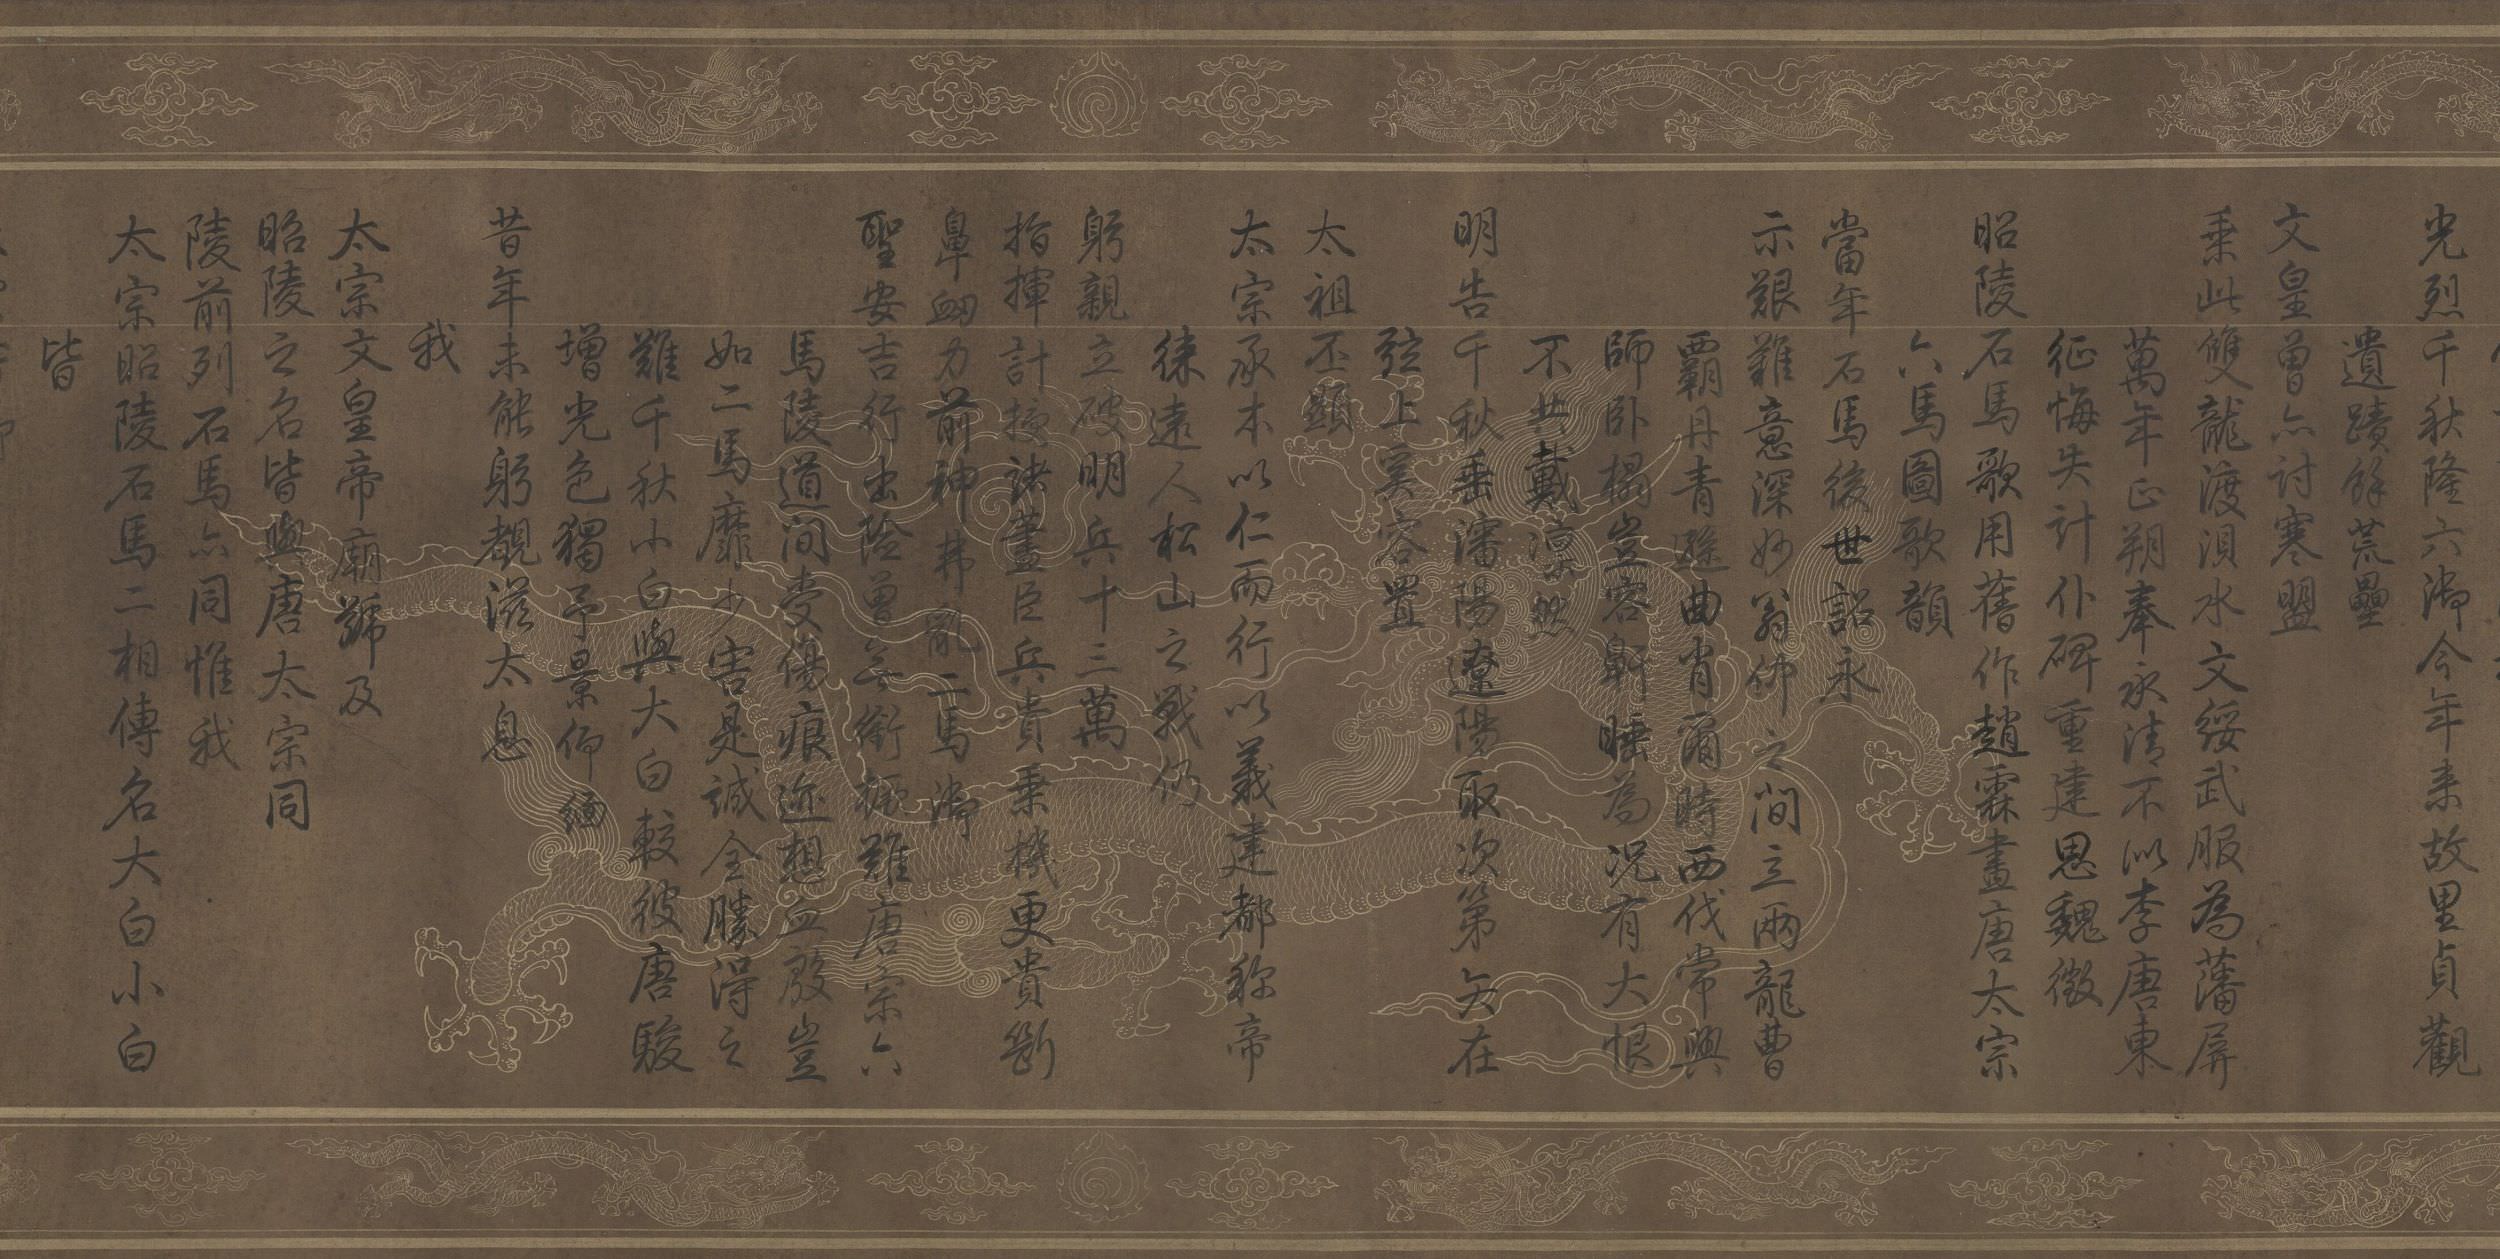 光烈千秋隆六御今年來故里貞觀
遺蹟餘荒壘
文皇曾亦討寒盟
乘此雙龍渡浿水文綏武服為藩屏
萬年正朔奉永清不似李唐東
征悔失計仆碑重建思魏徵
昭陵石馬歌用舊作趙霖畫唐太宗
六馬圖歌韻
當年石馬後世詔永
示艱難意深妙翁仲之間立兩龍曹
霸丹青遜曲肖爾時西伐常興
師臥榻豈容鼾睡為況有大恨
不共戴凜然
明告千秋垂瀋陽遼陽取次第矢在
弦上奚容置
太祖丕顯
太宗承木以仁而行以義建都称帝
徠遠人松山之戰仍
躬親立破明兵十三萬
指揮計授諸藎臣兵貴乘機更貴斷
鼻衄力前神弗亂二馬御
聖安吉行出險曾無銜橛難唐宗六
馬陵道間變傷痕迹想血殷豈
如二馬靡少害是誠全勝得之
難千秋小白與大白較彼唐駿
增光色獨予景仰緬
昔年未能躬覩滋太息
我
太宗文皇帝廟號及
昭陵之名皆與唐太宗同
陵前列石馬亦同惟我
太宗昭陵石馬二相傳名大白小白
皆